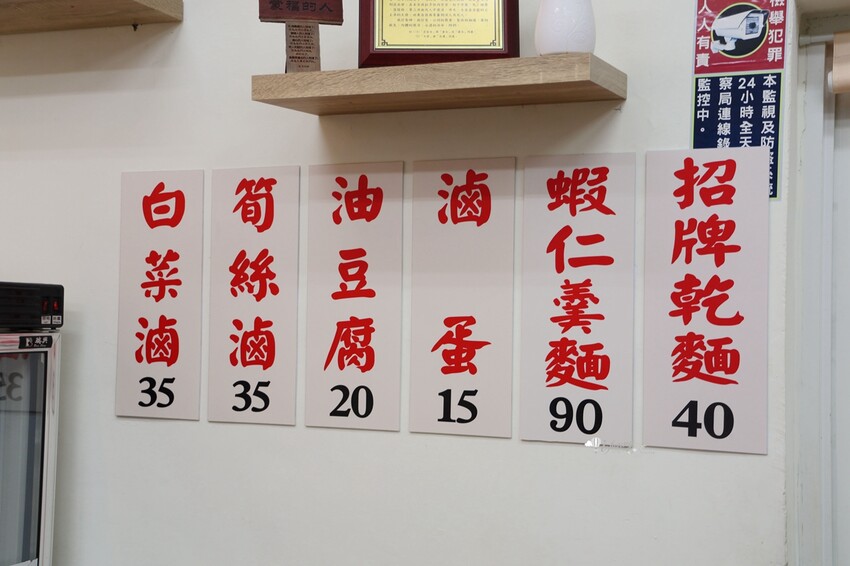 招牌乾麵
40
蝦仁羹麵
90
滷蛋
15
油豆腐
20
筍絲滷
35
白菜滷
35
檢舉犯罪
人人有責
本監視及防盜系統
24小時全天
察局連線錄
監控中。